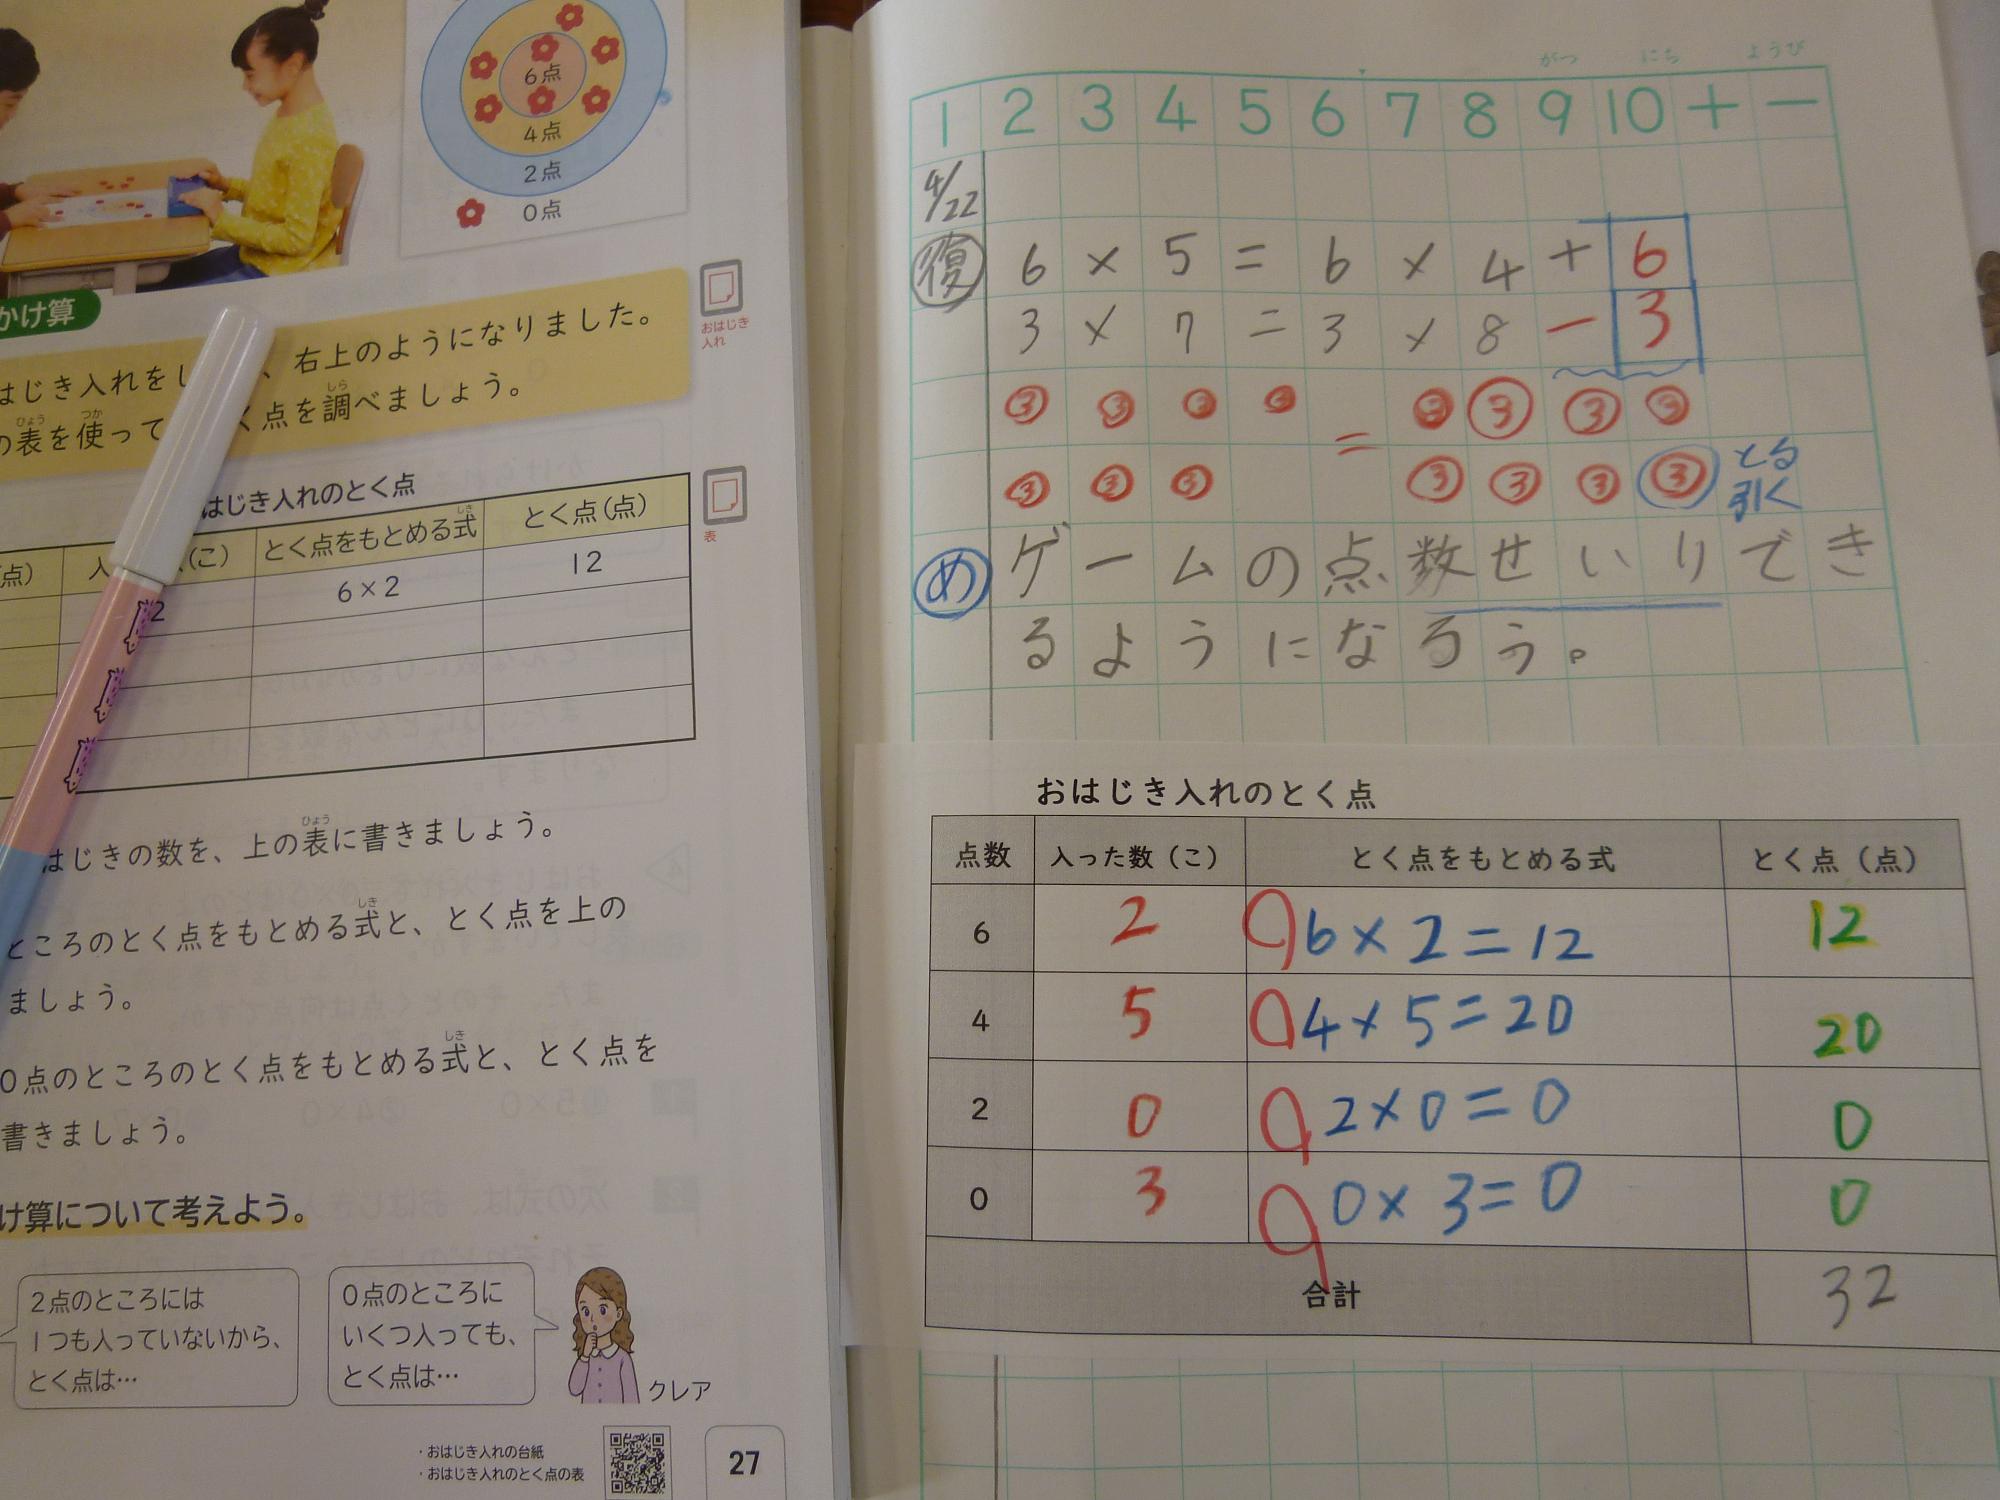 6点
4点
2点
0点
かけ算
おはじき
入れ
はじき入れをし
、右上のようになりました。
の表を使って
く点を調べましょう。
ひょう
つか
しら
はじき入れのとく点
表
点)
(こ)
とく点をもとめる式
しき
とく点(点)
2
6×2
12
はじきの数を、上の表に書きましょう。
ひょう
ところのとく点をもとめる式と、とく点を上の
しき
ましょう。
0点のところのとく点をもとめる式と、とく点を
しき
書きましょう。
け算について考えよう。
2点のところには
1つも入っていないから、
とく点は…
0点のところに
いくつ入っても、
とく点は…
クレア
・おはじき入れの台紙
・おはじき入れのとく点の表
27
がつ にち ようび
1 2 3 4 5 6 7 8 9 10 + −
4/22
復 6 × 5 = 6 × 4 + 6
3 × 7 = 3 × 8 − 3
③ ③ ③ ③ ③ ③ ③ ③
=
③ ③ ③ ③ ③ ③ ③ とる
引く
め ゲームの点数せいりでき
るようになろう。
おはじき入れのとく点
点数 入った数(こ) とく点をもとめる式 とく点(点)
6 2 6×2=12 12
4 5 4×5=20 20
2 0 2×0=0 0
0 3 0×3=0 0
合計 32